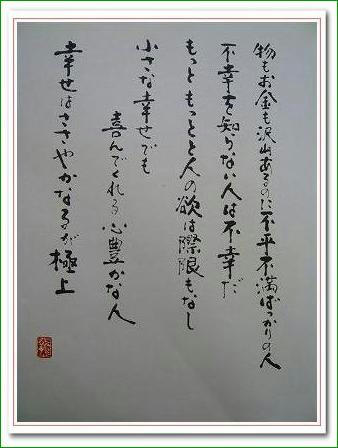 物もお金も沢山あるのに不平不満ばっかりの人
不幸を知らない人は不幸だ
もっともっとと人の欲は際限もなし
小さな幸せでも
喜んでくれる心豊かな人
幸せはささやかなるが極上